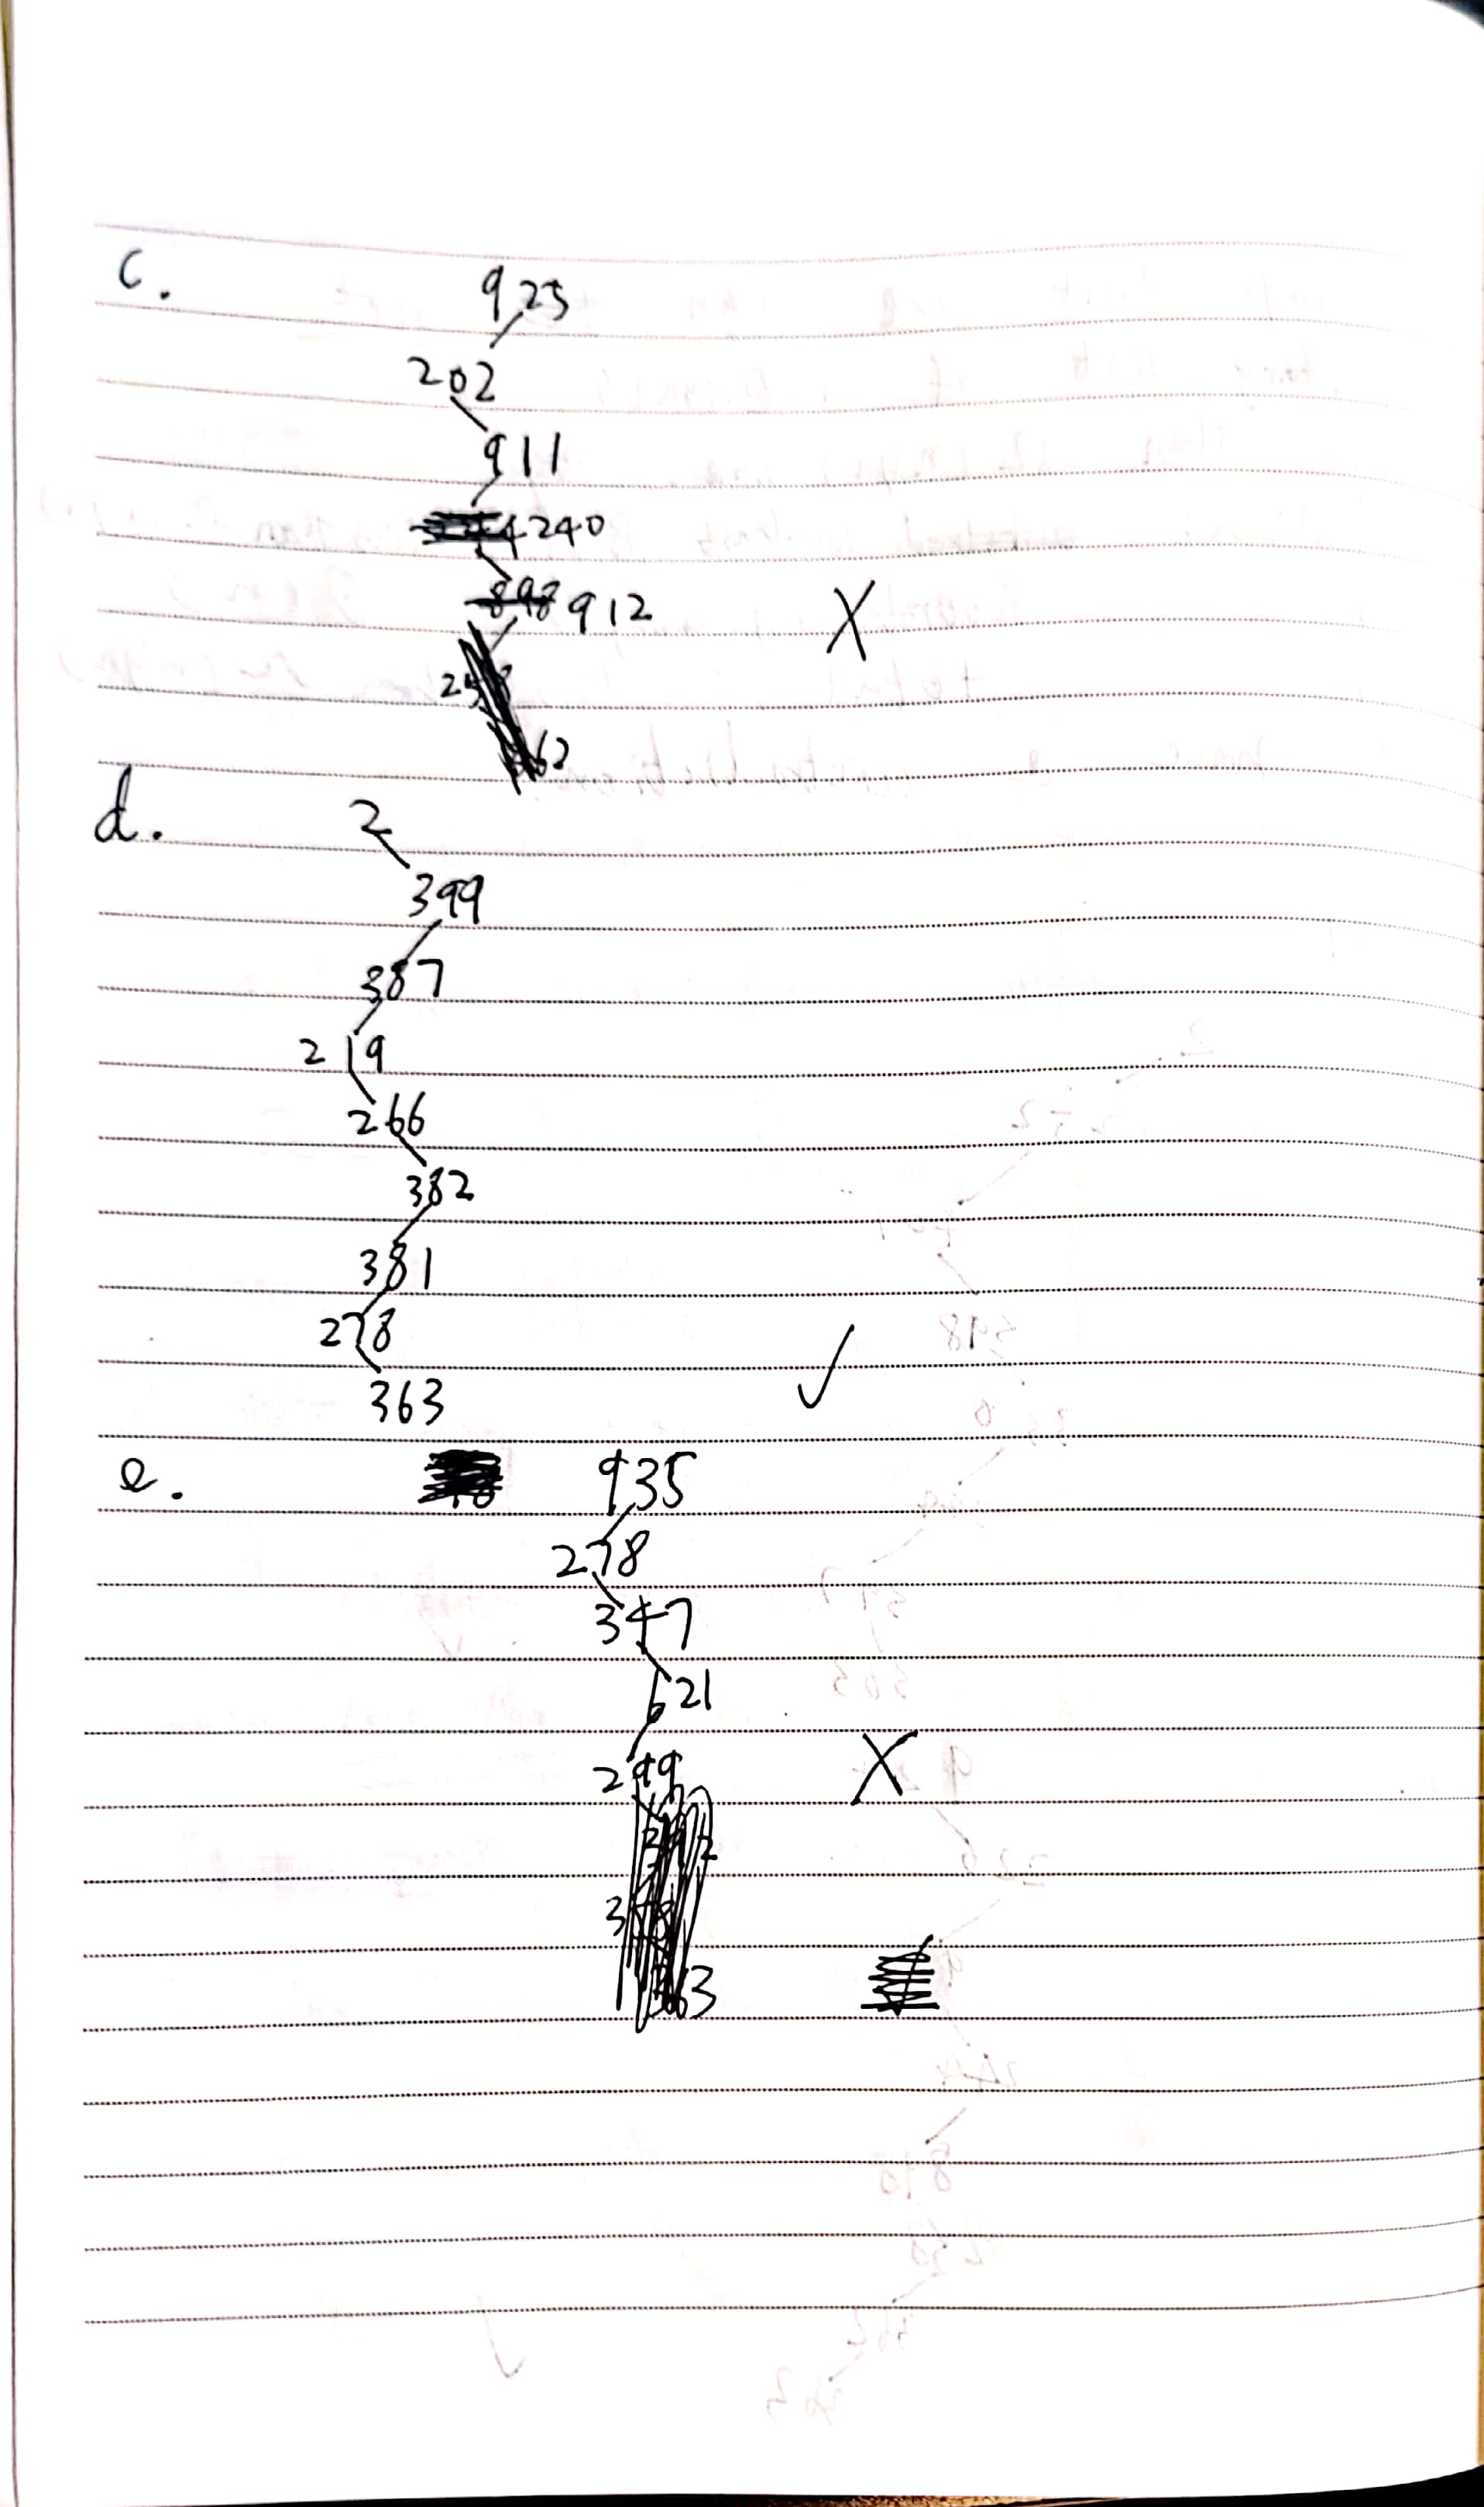 c.
925
202
911
240
898 912
X
d.
2
399
387
219
266
382
381
278
363
✓
e.
935
278
347
621
299
X